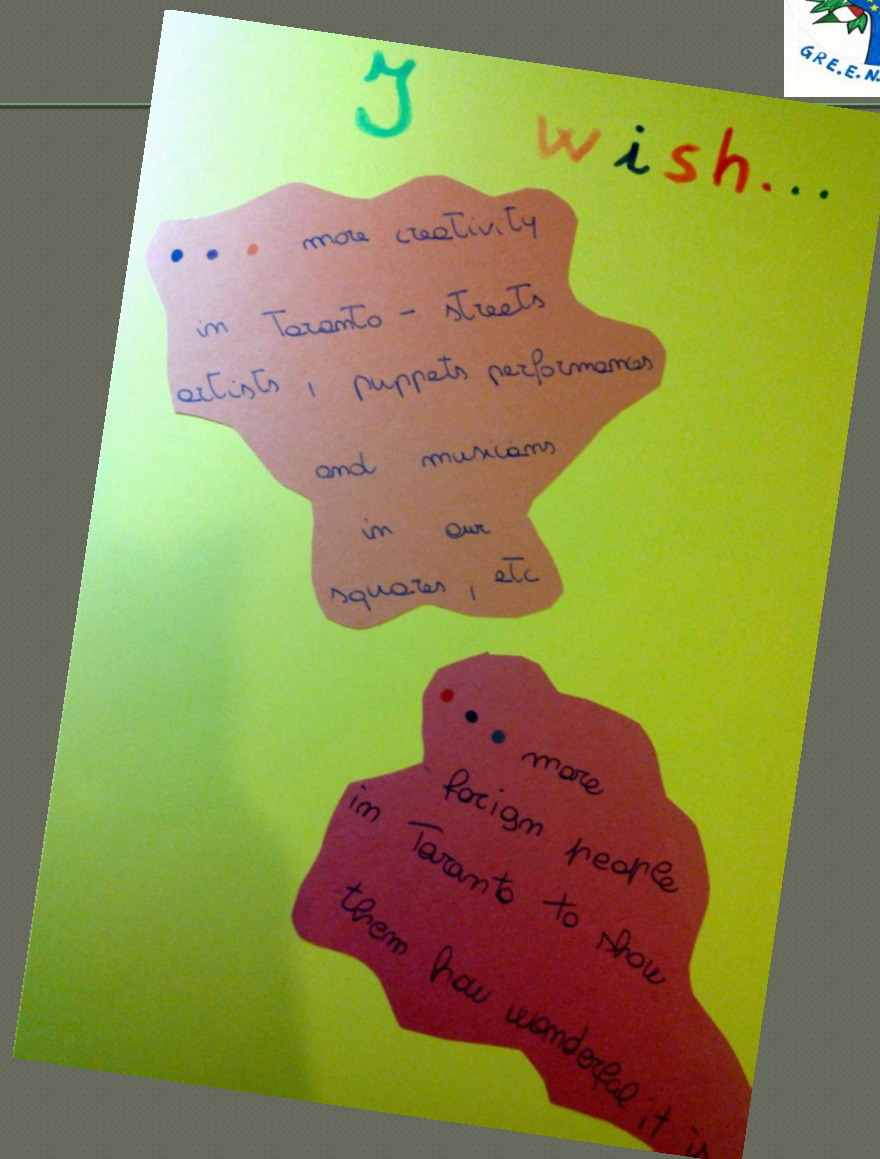 GR.E.E.N.
I wish...
... more creativity
in Taranto - streets
artists , puppets performances
and musicians
in our
squares , etc
... more
foreign people
in Taranto to show
them how wonderful it is